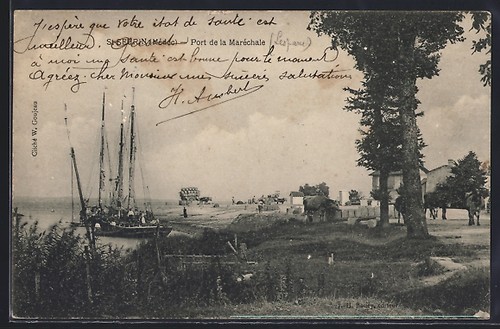 J'espère que votre état de santé est
meilleur. St-SEURIN (Médoc) - Port de la Maréchale (Lesparre)
à moi ma Santé est bonne pour le moment
Agréez cher Monsieur mes sincères salutations
H. Aubert
Cliché W. Goujeau